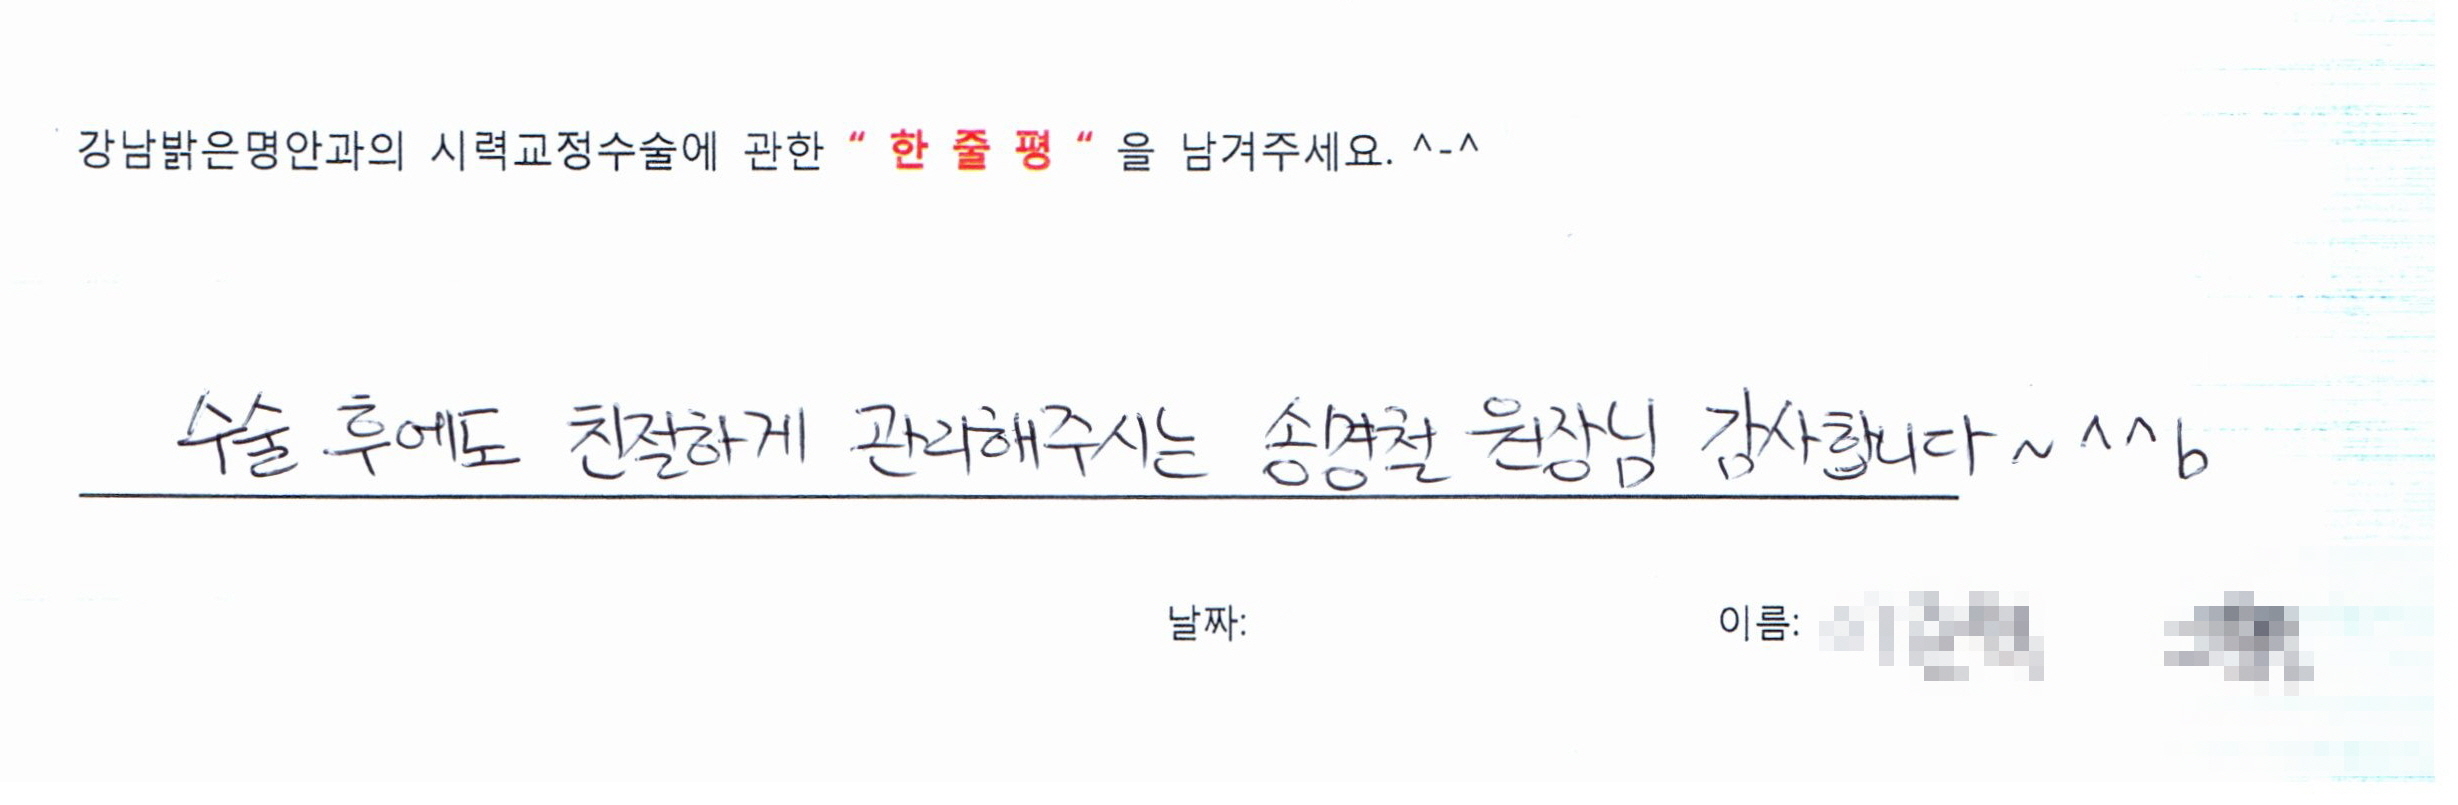 강남밝은명안과의 시력교정수술에 관한 “ 한 줄 평 “ 을 남겨주세요. ^-^
수술 후에도 친절하게 관리해주시는 송경철 원장님 감사합니다~ ^^b
날짜: 이름: